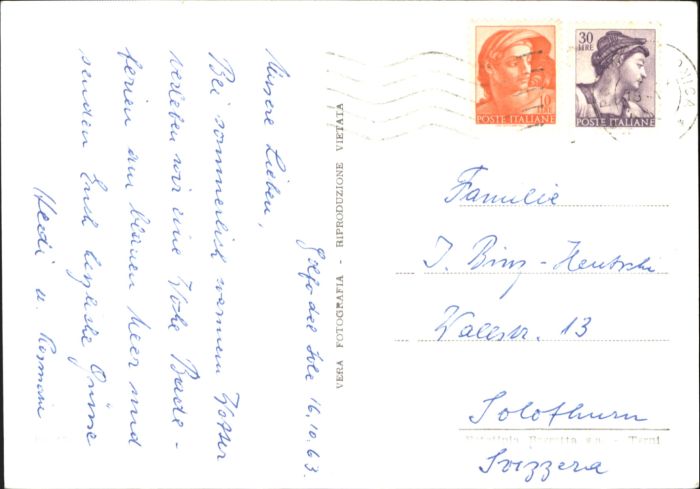 Golfo del Sole 16.10.63.
Unsere Lieben,
Bei sommerlich warmem Wetter
verleben wir eine Woche Bade-
ferien am blauen Meer und
senden Euch herzliche Grüsse
Hedi u. Rosmarie
VERA FOTOGRAFIA - RIPRODUZIONE VIETATA
POSTE ITALIANE
30
LIRE
POSTE ITALIANE
Familie
J. Binz-Hentschi
Wallstr. 13
Solothurn
Svizzera